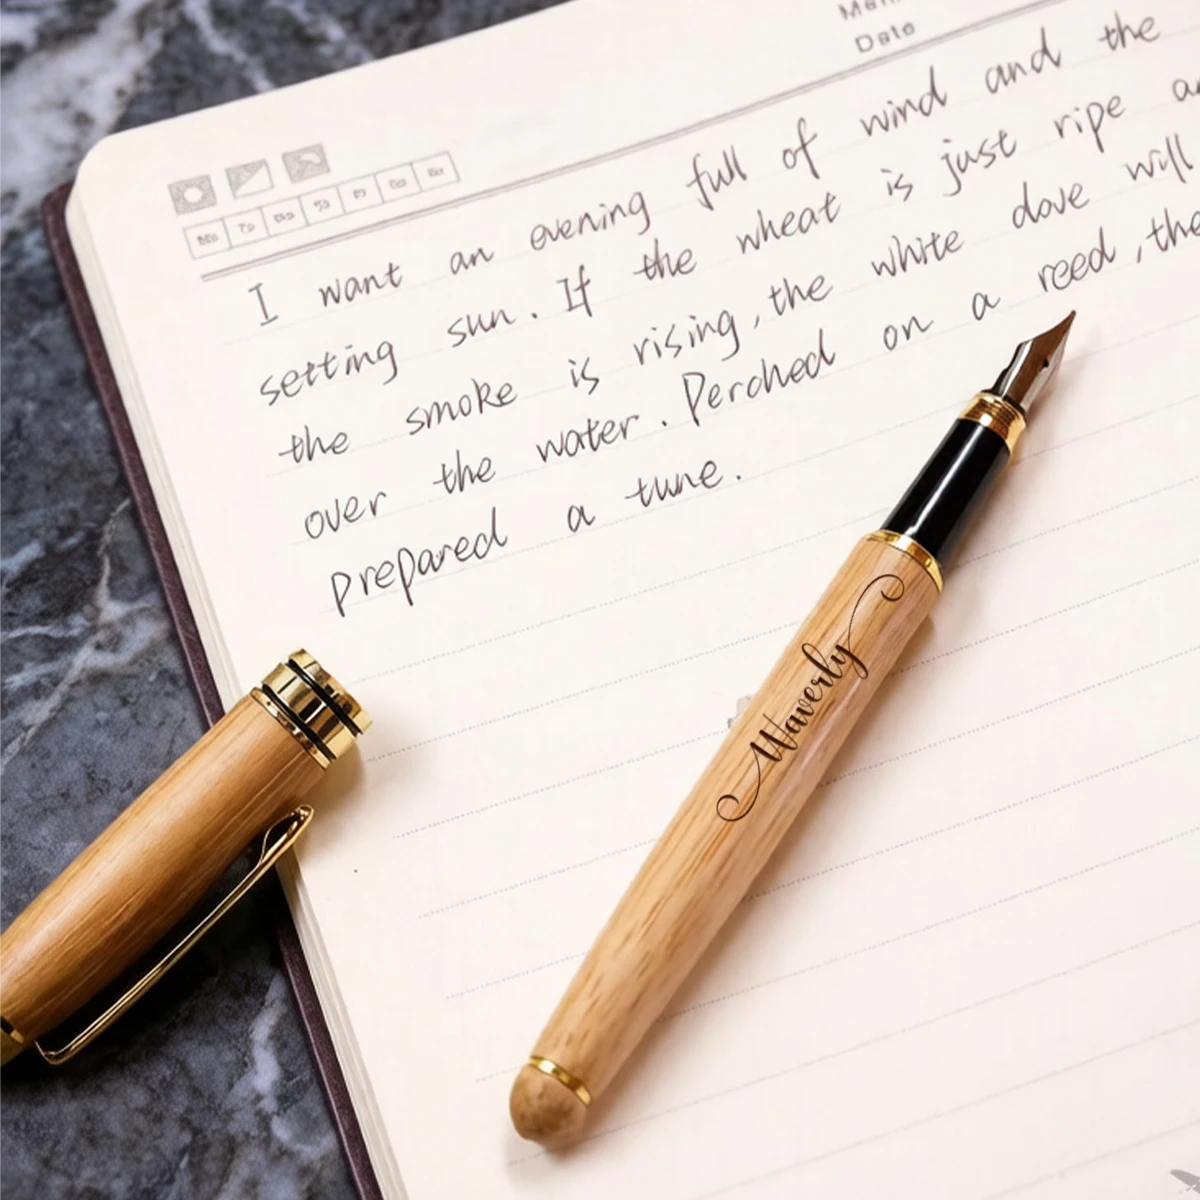 Date
I want an evening full of wind and the
setting sun. If the wheat is just ripe
the smoke is rising, the white dove will
over the water. Perched on a reed, the
prepared a tune.
Waverly